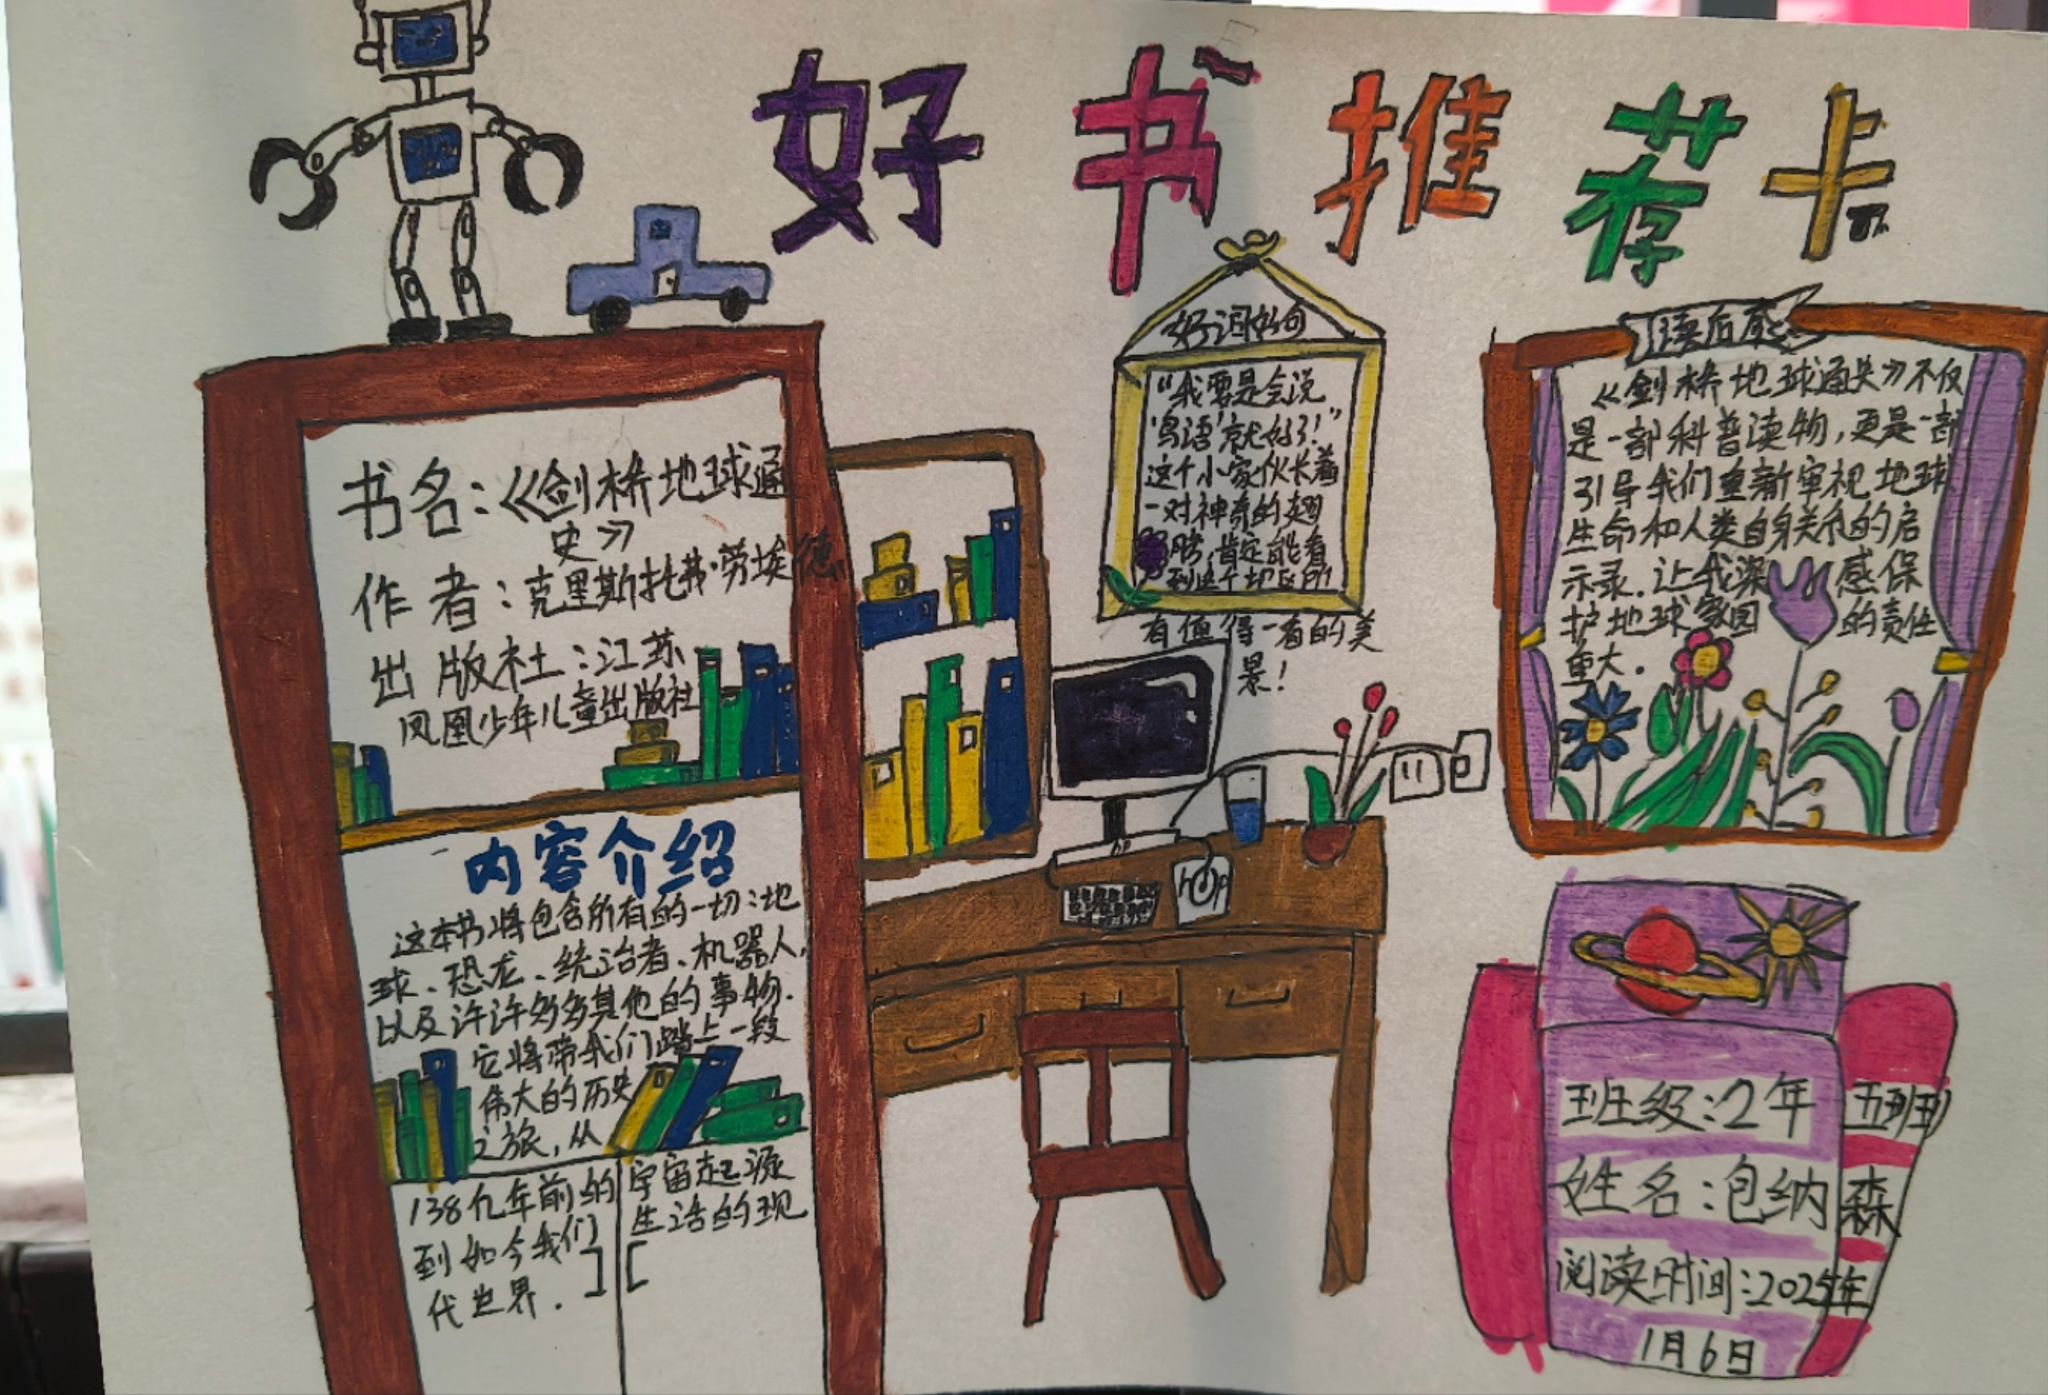 好书推荐卡
书名：《剑桥地球通
史》
作者：克里斯托弗·劳埃德
出版社：江苏
凤凰少年儿童出版社
内容介绍
这本书将包含所有的一切：地
球、恐龙、统治者、机器人，
以及许许多多其他的事物.
它将带我们踏上一段
伟大的历史
之旅，从
138亿年前的宇宙起源
到如今我们生活的现
代世界.
好词好句
“我要是会说
‘鸟语’就好了！”
这个小家伙长着
一对神奇的翅
膀，肯定能看
到这个地区所
有值得一看的美
景！
读后感
《剑桥地球通史》不仅
是一部科普读物，更是一部
引导我们重新审视地球、
生命和人类自身关系的启
示录.让我深感保
护地球家园的责任
重大.
班级：2年五班
姓名：包纳森
阅读时间：2025年
1月6日